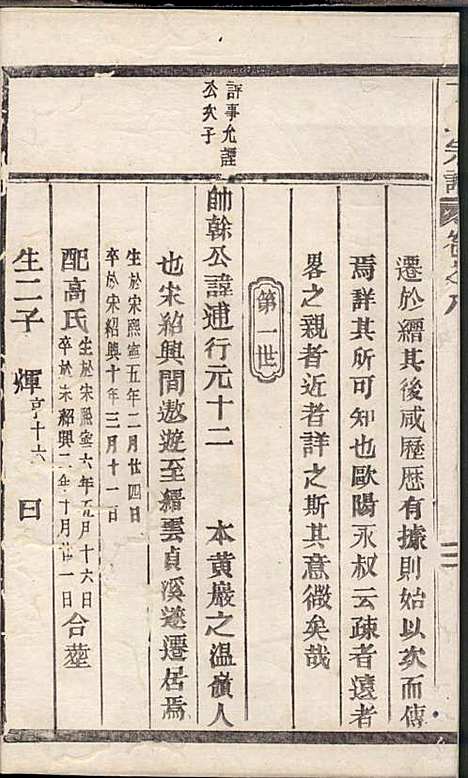 宗譜 卷之
遷於縉其後咸歷歷有據則始以次而傳
焉詳其所可知也歐陽永叔云疎者遠者
畧之親者近者詳之斯其意微矣哉
第一世
評事允謹
公次子
帥幹公諱連行元十二 本黃巖之温嶺人
也宋紹興間遨遊至縉雲貞溪遂遷居焉
生於宋熙寧五年二月廿四日
卒於宋紹興十年三月十一日
配高氏
生於宋熙寧六年五月十六日
卒於宋紹興二年十月廿一日
合葬
生二子 煇 亨十六